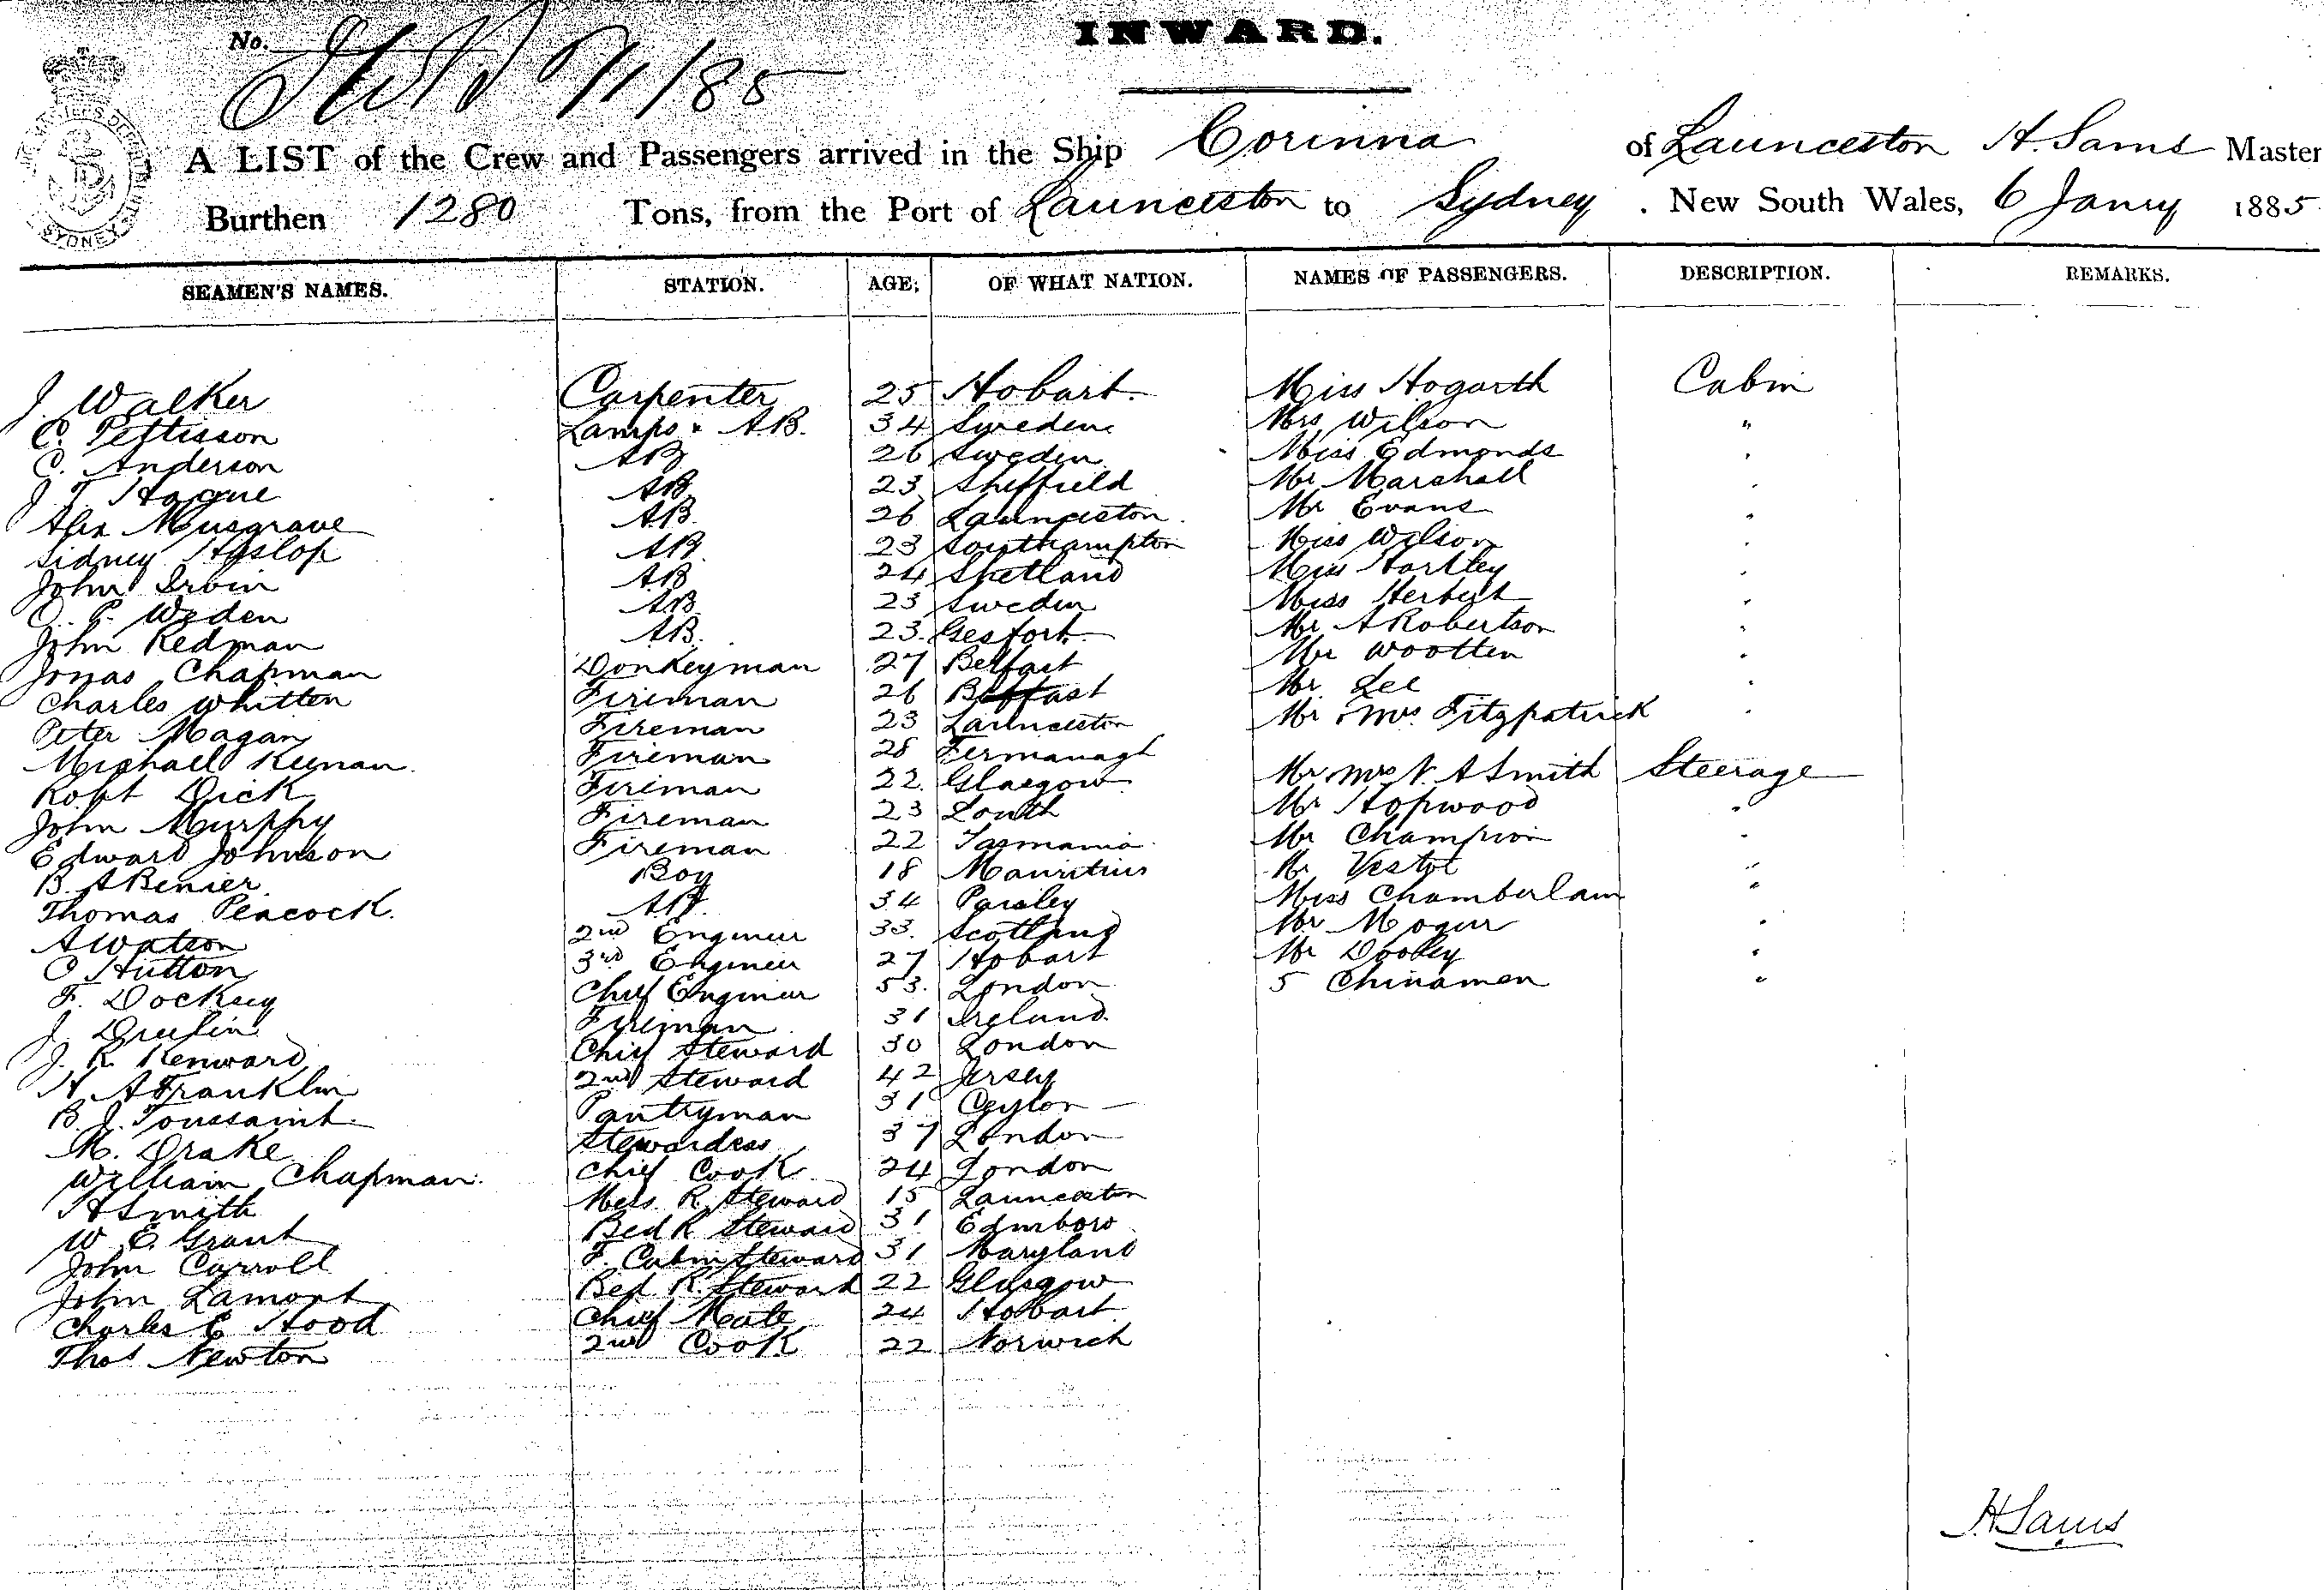 INWARD.
No. 6/1/85
A LIST of the Crew and Passengers arrived in the Ship Corinna of Launceston H. Sams Master
Burthen 1280 Tons, from the Port of Launceston to Sydney . New South Wales, 6 Janry 1885
SEAMEN'S NAMES. STATION. AGE. OF WHAT NATION. NAMES OF PASSENGERS. DESCRIPTION. REMARKS.
J. Walker Carpenter 25 Hobart. Miss Hogarth Cabin
C. Pettisson Lamps & A.B. 34 Sweden Mrs Wilson "
C. Anderson AB 26 Sweden Miss Edmonds "
J T Hague AB 23 Sheffield Mr Marshall "
Alex Musgrave AB 26 Launceston Mr Evans "
Sidney Hyslop AB 23 Southampton Miss Wilson "
John Irvin AB 24 Shetland Miss Hartley "
C. P. Weden AB 23 Sweden Miss Herbert "
John Redman AB. 23. Mr A Robertson "
Jonas Chapman Donkeyman 27 Belfast Mr Wootten "
Charles Whitten Fireman 26 Belfast Mr Lee "
Peter Magan Fireman 23 Launceston Mr & Mrs Fitzpatrick "
Michall Keenan Fireman 28 Fermanagh
Robt Dick Fireman 22 Glasgow Mr Mrs V. A Smith Steerage
John Murphy Fireman 23 Louth Mr Hopwood "
Edward Johnson Fireman 22 Tasmania Mr Champion "
B. A Benier Boy 18 Mauritius Mr "
Thomas Peacock. AB. 34 Paisley Miss Chamberlain "
A Watson 2nd Engineer 33. Scotland Mr Moger "
C Hutton 3rd Engineer 27 Hobart Mr Dooley "
F. Dockey Chief Engineer 53. London 5 Chinamen "
J. Fireman 31 Ireland
J. R Kenward Chief Steward 30 London
H. A Franklin 2nd Steward 42 Jersey
B. J. Toussaint Pantryman 31 Ceylon
M. Drake Stewardess 37 London
William Chapman. Chief Cook 24 London
H Smith Mess R. Steward 15 Launceston
W. E. Grant Bed R Steward 31 Edinboro
John Carroll F. Cabin Steward 31 Maryland
John Lamont Bed R. Steward 22 Glasgow
Charles E Hood Chief Mate 24 Hobart
Thos Newton 2nd Cook 22 Norwich
H Sams